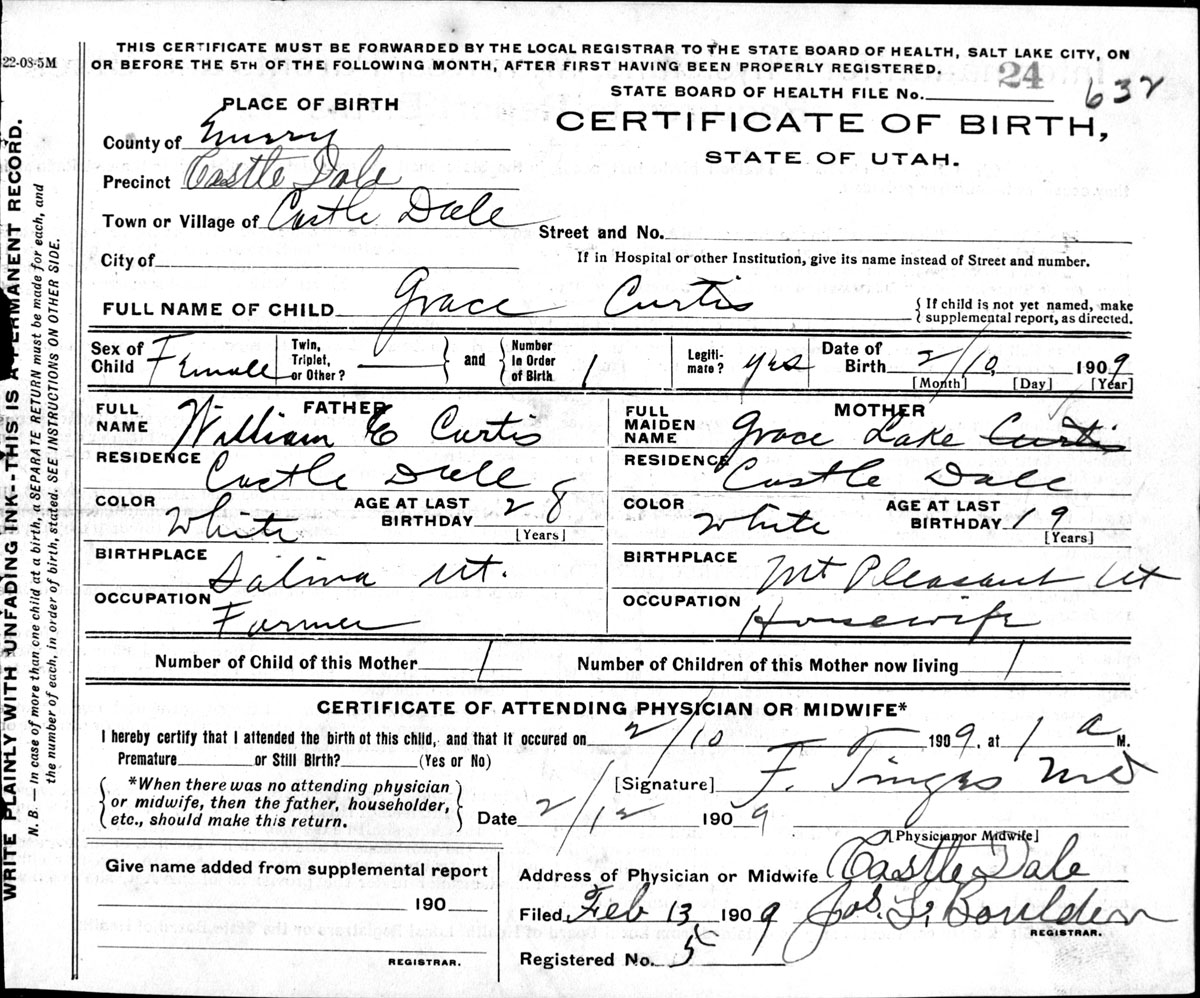 22-08-5M
THIS CERTIFICATE MUST BE FORWARDED BY THE LOCAL REGISTRAR TO THE STATE BOARD OF HEALTH, SALT LAKE CITY, ON
OR BEFORE THE 5TH OF THE FOLLOWING MONTH, AFTER FIRST HAVING BEEN PROPERLY REGISTERED.
STATE BOARD OF HEALTH FILE No. 24 632
PLACE OF BIRTH
CERTIFICATE OF BIRTH,
STATE OF UTAH.
County of Emery
Precinct Castle Dale
Town or Village of Castle Dale
Street and No.
City of
If in Hospital or other Institution, give its name instead of Street and number.
FULL NAME OF CHILD Grace Curtis
{If child is not yet named, make
supplemental report, as directed.
Sex of Child Female
Twin, Triplet, or Other?
and
Number In Order of Birth 1
Legiti-mate? yes
Date of Birth 2/10, 1909
[Month] [Day] [Year]
FATHER
FULL NAME William E Curtis
RESIDENCE Castle Dale
COLOR White
AGE AT LAST BIRTHDAY 28
[Years]
BIRTHPLACE Salina Ut.
OCCUPATION Farmer
MOTHER
FULL MAIDEN NAME Grace Lake Curtis
RESIDENCE Castle Dale
COLOR White
AGE AT LAST BIRTHDAY 19
[Years]
BIRTHPLACE Mt Pleasant Ut
OCCUPATION Housewife
Number of Child of this Mother 1
Number of Children of this Mother now living 1
CERTIFICATE OF ATTENDING PHYSICIAN OR MIDWIFE*
I hereby certify that I attended the birth of this child, and that it occured on 2/10 1909, at 1 a M.
Premature or Still Birth? (Yes or No)
*When there was no attending physician
or midwife, then the father, householder,
etc., should make this return.
[Signature] F. MD
Date 2/12 1909
[Physician or Midwife]
Give name added from supplemental report
190
REGISTRAR.
Address of Physician or Midwife Castle Dale
Filed Feb 13 1909 Jos. Boulden
REGISTRAR.
Registered No. 5
WRITE PLAINLY WITH UNFADING INK--THIS IS A PERMANENT RECORD.
N. B. — In case of more than one child at a birth, a SEPARATE RETURN must be made for each, and
the number of each, in order of birth, stated. SEE INSTRUCTIONS ON OTHER SIDE.